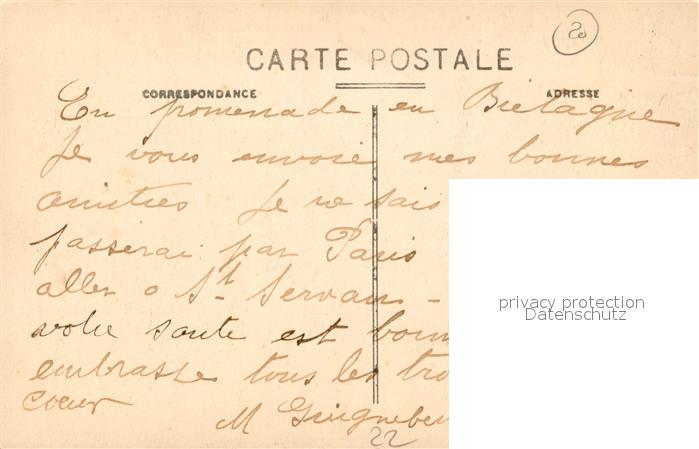 20
CARTE POSTALE
CORRESPONDANCE
ADRESSE
En promenade en Bretagne
Je vous envoie mes bonnes
amitiés Je ne sais
passerai par Paris
aller a St. Servan -
privacy protection
Datenschutz
votre santé est bonn
embrasse tous les tro
coeur
M
22